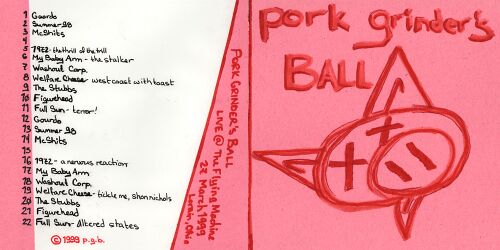 1 Gourds
2 Summer 98
3 McShits
4
5 1972 - the thrill of the trill
6 My Baby Arm - the stalker
7 Washout Corp.
8 Welfare Cheese - west coast with toast
9 The Stubbs
10 Figurehead
11 Full Sun - terror!
12 Gourds
13 Summer 98
14 McShits
15
16 1972 - a nervous reaction
17 My Baby Arm
18 Washout Corp.
19 Welfare Cheese - tickle me, shannichols
20 The Stubbs
21 Figurehead
22 Full Sun - Altered states
© 1999 p.g.b.
PORK GRINDER'S BALL
LIVE @ The Flying Machine
27 March 1999
Lorain, Ohio
pork grinder's
BALL